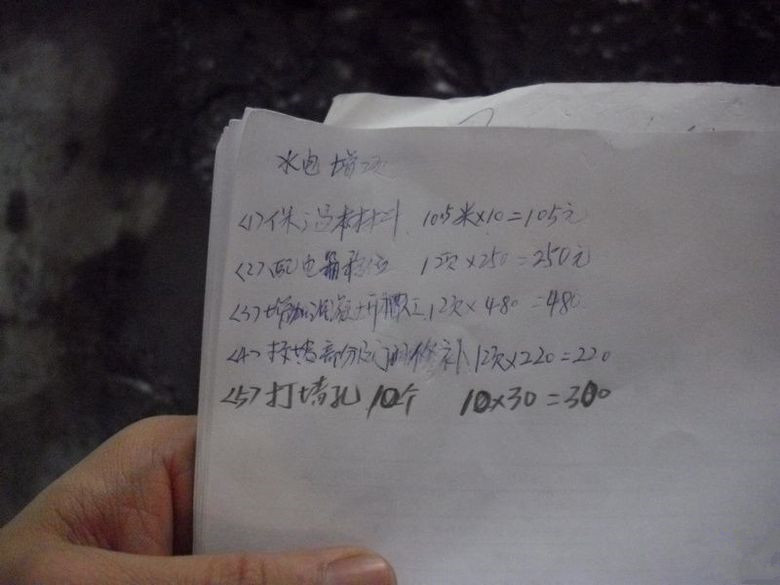 水电增项
<1>保温材料 10.5米×10=105元
<2>配电箱移位 1次×250=250元
<3>增加混凝土开槽工 1次×480=480
<4>拆墙部分及门洞修补 1次×220=220
<5>打墙孔 10个 10×30=300